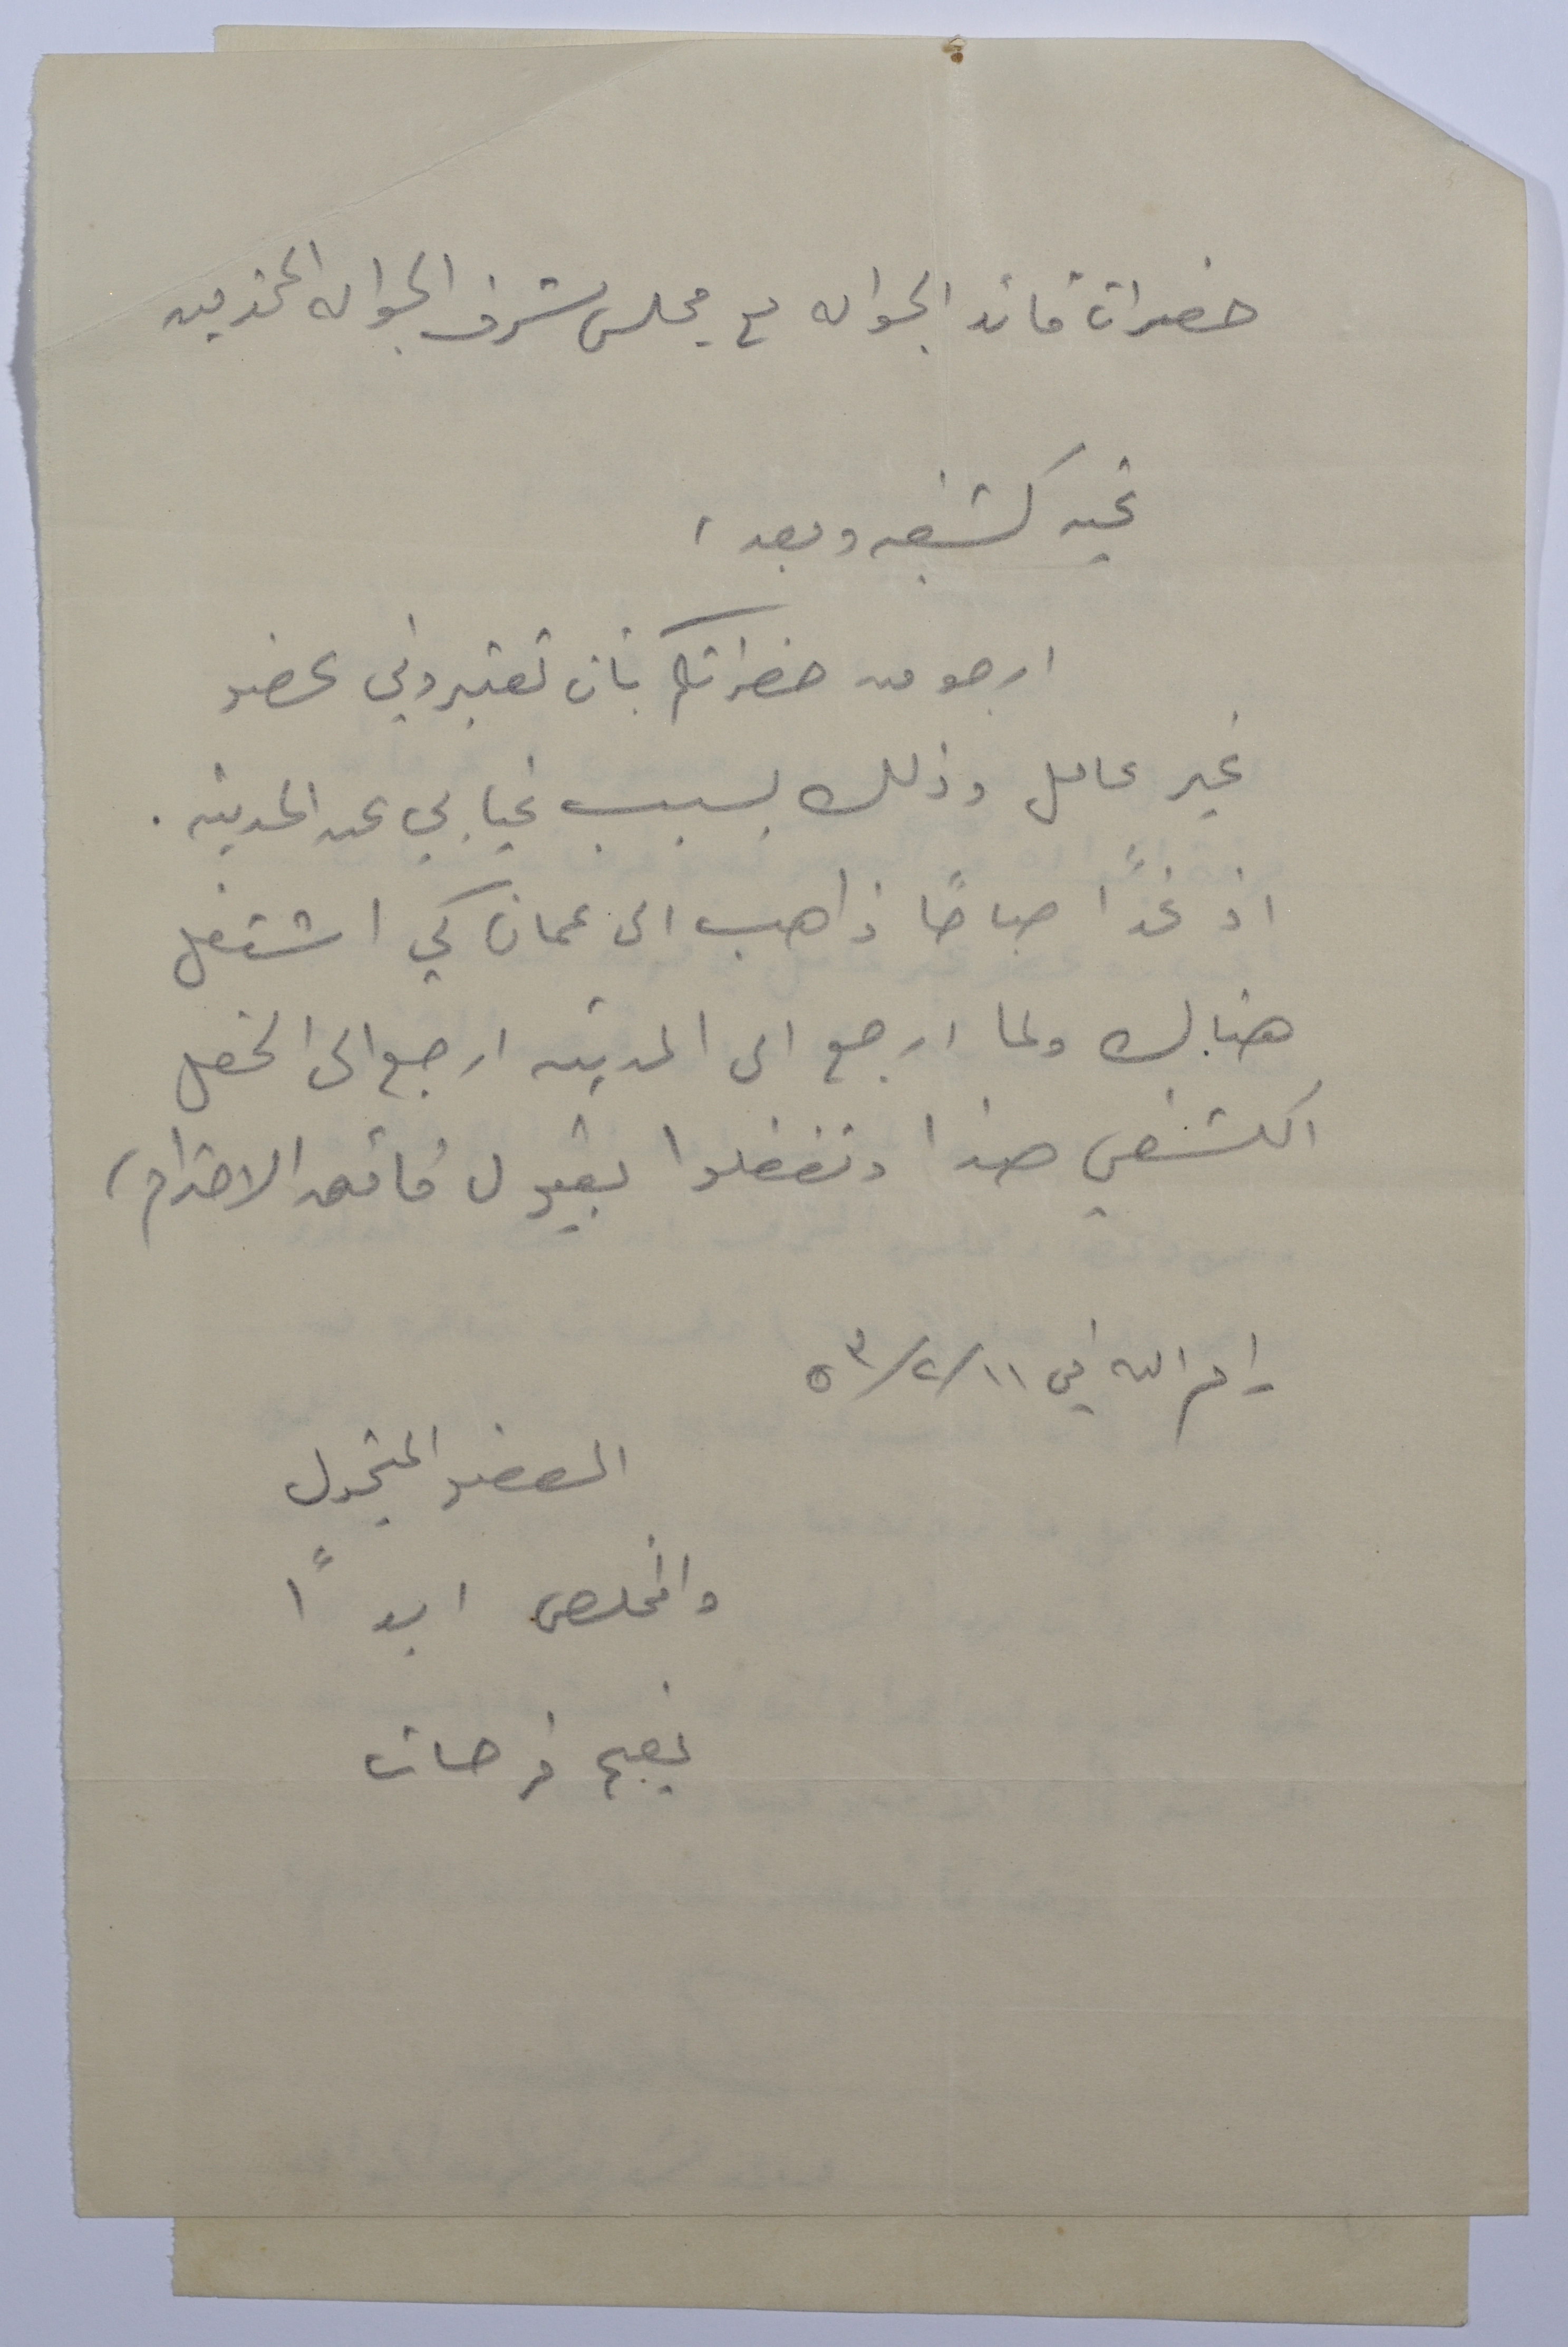 حضرات قائد الجواله مع مجلس شرف الجواله المحترمين
تحيه كشفيه وبعد ،
ارجو من حضراتكم بان تعتبروني عضو
غير عامل وذلك بسبب غيابي عن المدينه .
اذ غداً صباحاً ذاهب الى عمان كي اشتغل
هنالك ولما ارجع الى المدينه ارجع الى الحقل
الكشفي هذا وتفضلوا بقبول فائق الاحترام ،
رام الله في ١١/٢/٥٣
العضو المتجول
والمخلص ابداً
فرحات